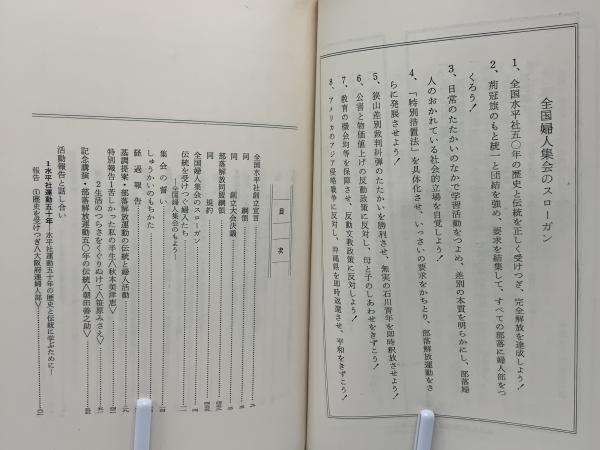 全国婦人集会のスローガン
1、全国水平社五〇年の歴史と伝統を正しく受けつぎ、完全解放を達成しよう！
2、荊冠旗のもと統一と団結を強め、要求を結集して、すべての部落に婦人部をつ
くろう！
3、日常のたたかいのなかで学習活動をつよめ、差別の本質を明らかにし、部落婦
人のおかれている社会的立場を自覚しよう！
4、「特別措置法」を具体化させ、いっさいの要求をかちとり、部落解放運動をさ
らに発展させよう！
5、狭山差別裁判糾弾のたたかいを勝利させ、無実の石川青年を即時釈放させよう！
6、公害と物価値上げの反動政策に反対し、母と子のしあわせをきずこう！
7、教育の機会均等を保障させ、反動文教政策に反対しよう！
8、アメリカのアジア侵略戦争に反対し、沖縄県を即時返還させ、平和をきずこう！
目次
全国水平社創立宣言
同 綱領
同 創立大会決議
部落解放同盟綱領
同 規約
全国婦人集会のスローガン
伝統を受けつぐ婦人たち
―全国婦人集会のもよう―
集会の誓い
しゅうかいのもちかた
経過報告
基調提案・部落解放運動の伝統と婦人活動
特別報告1苦しかった私の半生〈秋本美津恵〉
2生活のつらさをくぐりぬけて〈笹原みさえ〉
記念講演・部落解放運動五〇年の伝統〈朝田善之助〉
活動報告と話し合い
1水平社運動五十年―水平社運動五十年の歴史と伝統に学ぶために―
報告 ①歴史を受けつぎ〈大阪府連婦人部〉